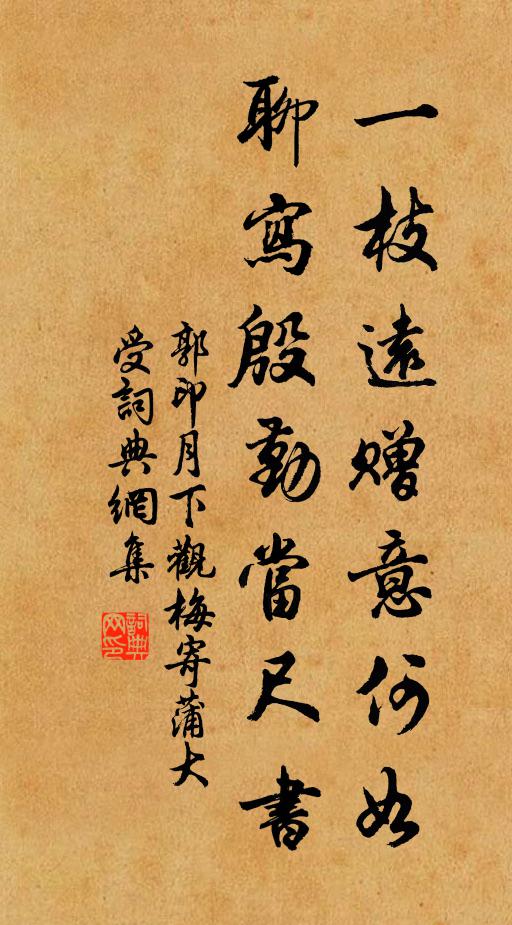 一枝遠贈意何如
聊寫殷勤當尺書
郭印月下觀梅寄蒲大
受詞典網集
詞典
网印